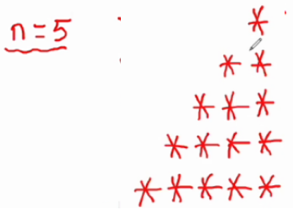 n = 5
*
* *
* * *
* * * *
* * * * *